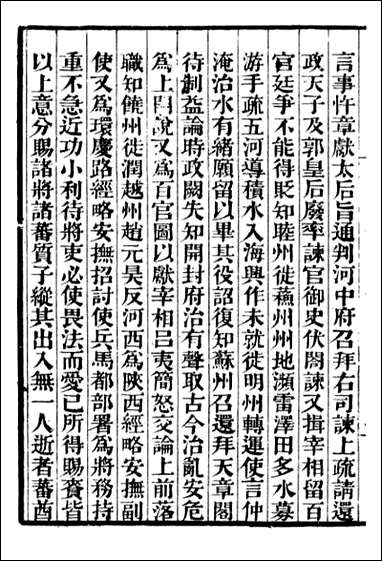 言事忤章獻太后旨通判河中府召拜右司諫上疏請還
政天子及郭皇后廢率諫官御史伏閤諫又揖宰相留百
官廷爭不能得貶知睦州徙蘇州州地瀕雷澤田多水募
游手疏五河導積水入海興作未就徙明州轉運使言仲
淹治水有緒願留以畢其役詔復知蘇州召還拜天章閣
待制益論時政闕失知開封府治有聲取古今治亂安危
為上開說又為百官圖以獻宰相呂夷簡怒交論上前落
職知饒州徙潤越州趙元昊反河西為陝西經略安撫副
使又為環慶路經略安撫招討使兵馬都部署為將務持
重不急近功小利待將吏必使畏法而愛己所得賜賚皆
以上意分賜諸將諸蕃質子縱其出入無一人逃者蕃酋